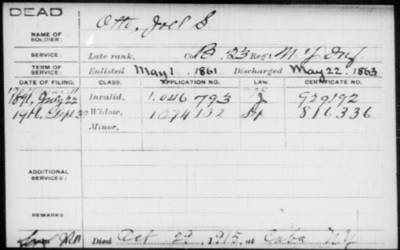 DEAD
NAME OF SOLDIER: Ott, Joel S
SERVICE: Late rank, Co. B. 23 Reg't N. Y. Inf
TERM OF SERVICE: Enlisted May 1 1861 Discharged May 22. 1863
DATE OF FILING. CLASS. APPLICATION NO. CERTIFICATE NO.
1891, July 22 Invalid, 1,046 793 929192
Sept 30 Widow, 816336
Minor,
ADDITIONAL SERVICES:
REMARKS:
Died Oct 1915, at Cuba NY